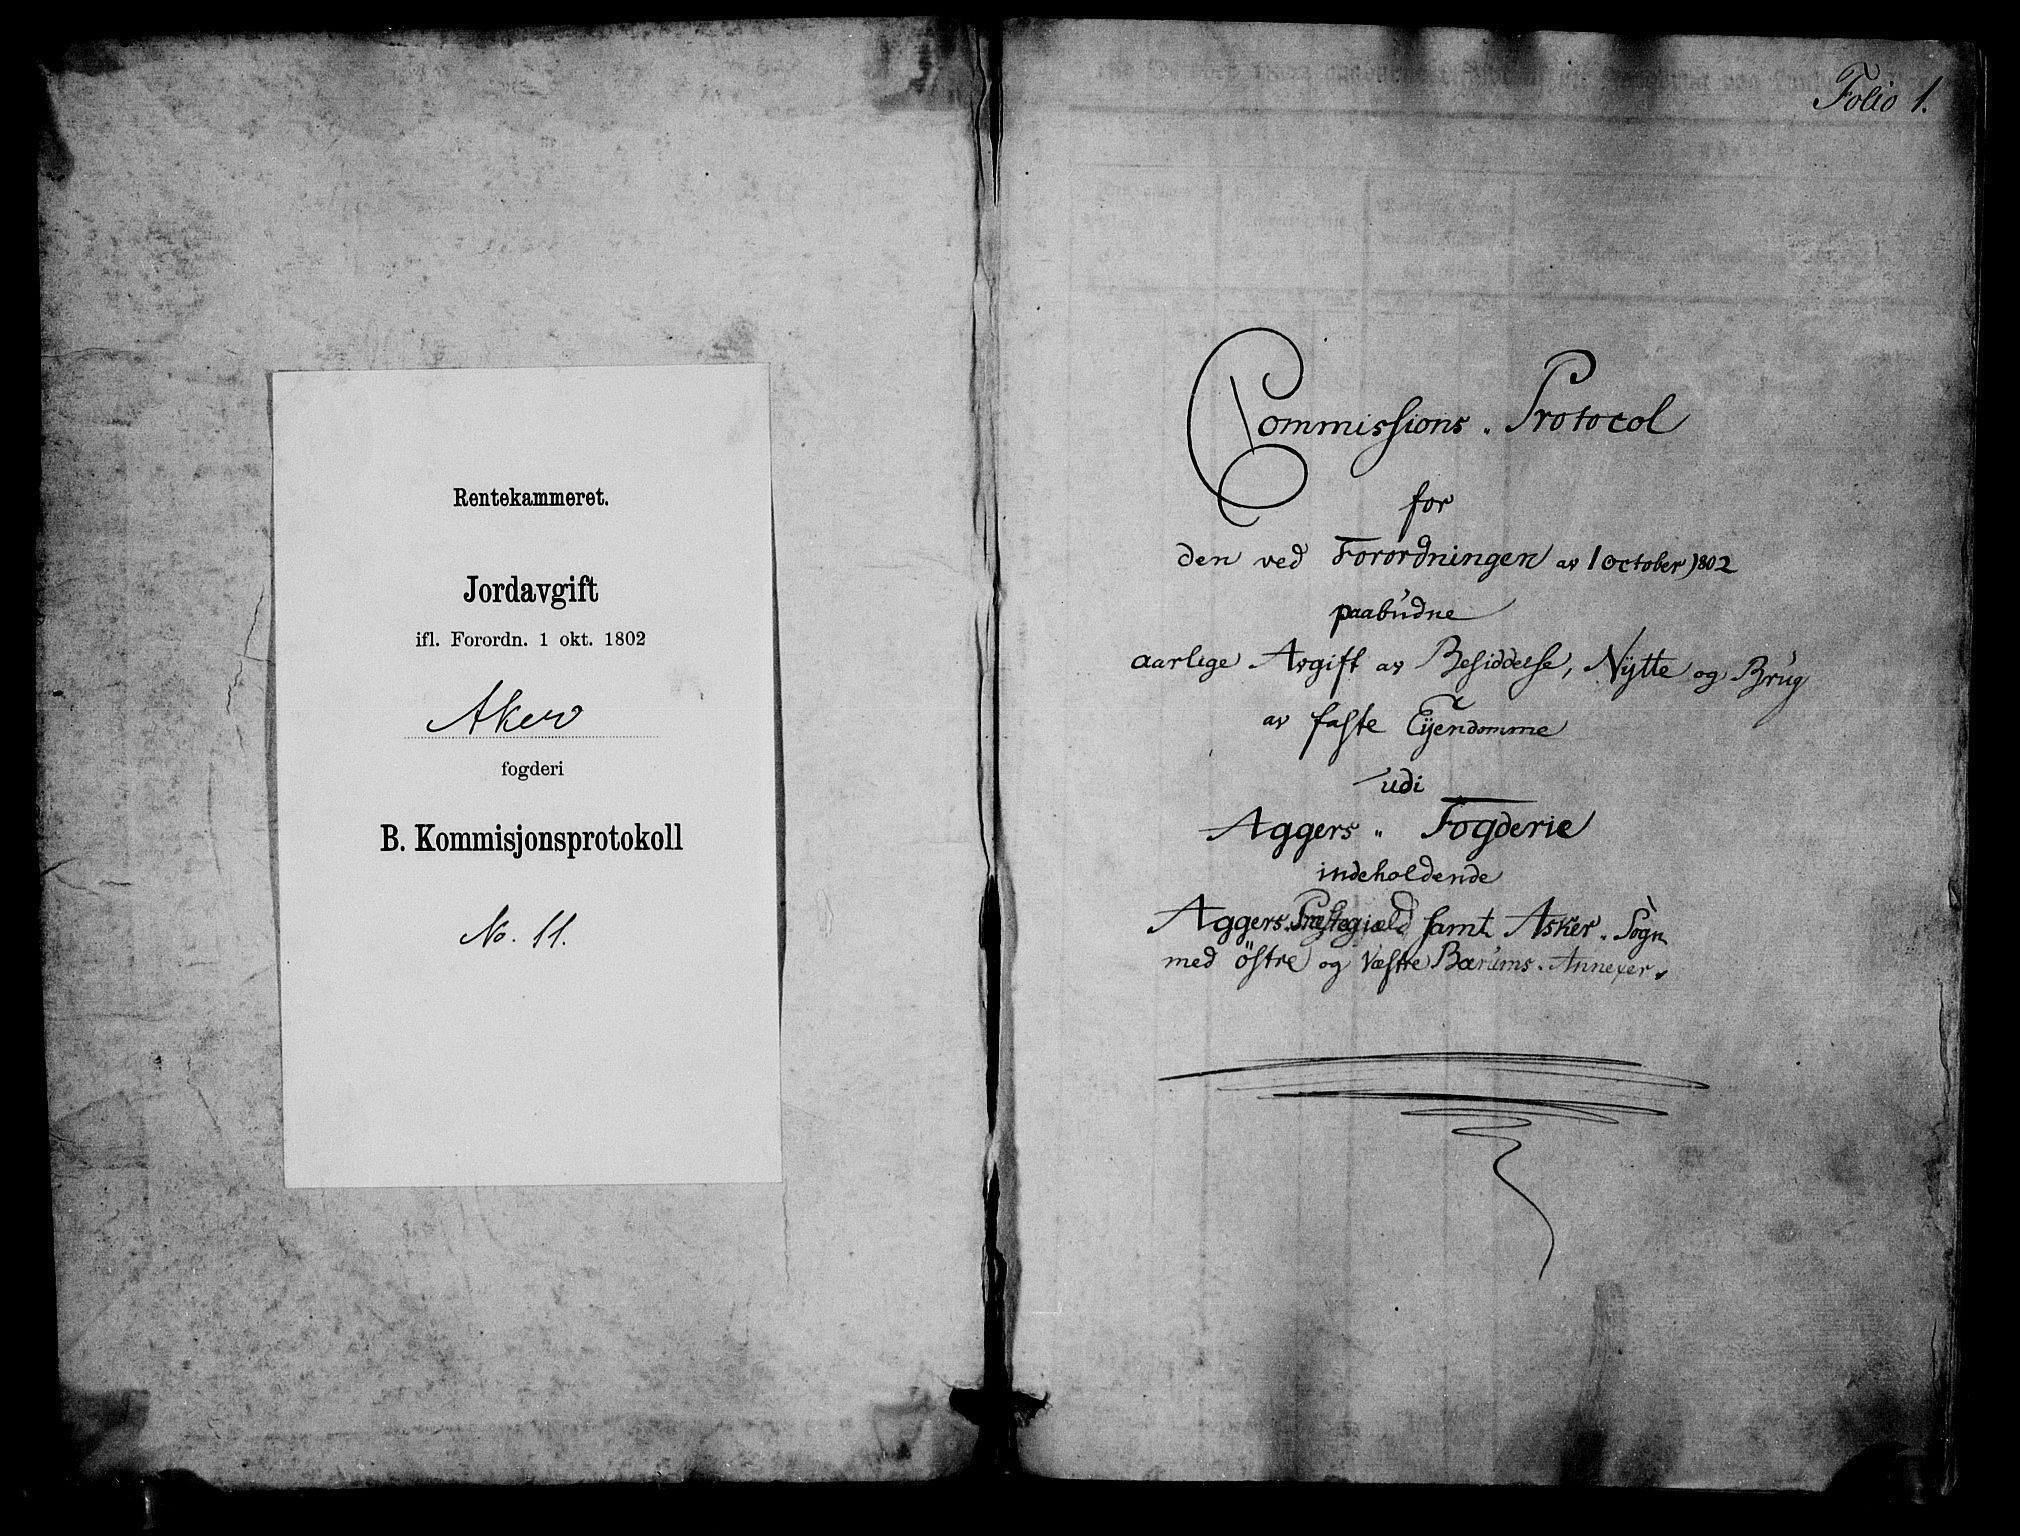 Rentekammeret.
Jordavgift
ifl. Forordn. 1 okt. 1802
Aker
fogderi
B. Kommisjonsprotokoll
No. 11.
Folio 1.
Commissions. Protocol
for
den ved Forordningen av 1 October 1802
paabudne
aarlige Avgift av Besiddelse, Nÿtte og Brug
av faste Eÿendomme
udi
Aggers. Fogderie
indeholdende
Aggers. Præstegiæld samt Asker. Sogn
med östre og Væstre Bærums. Annexer.